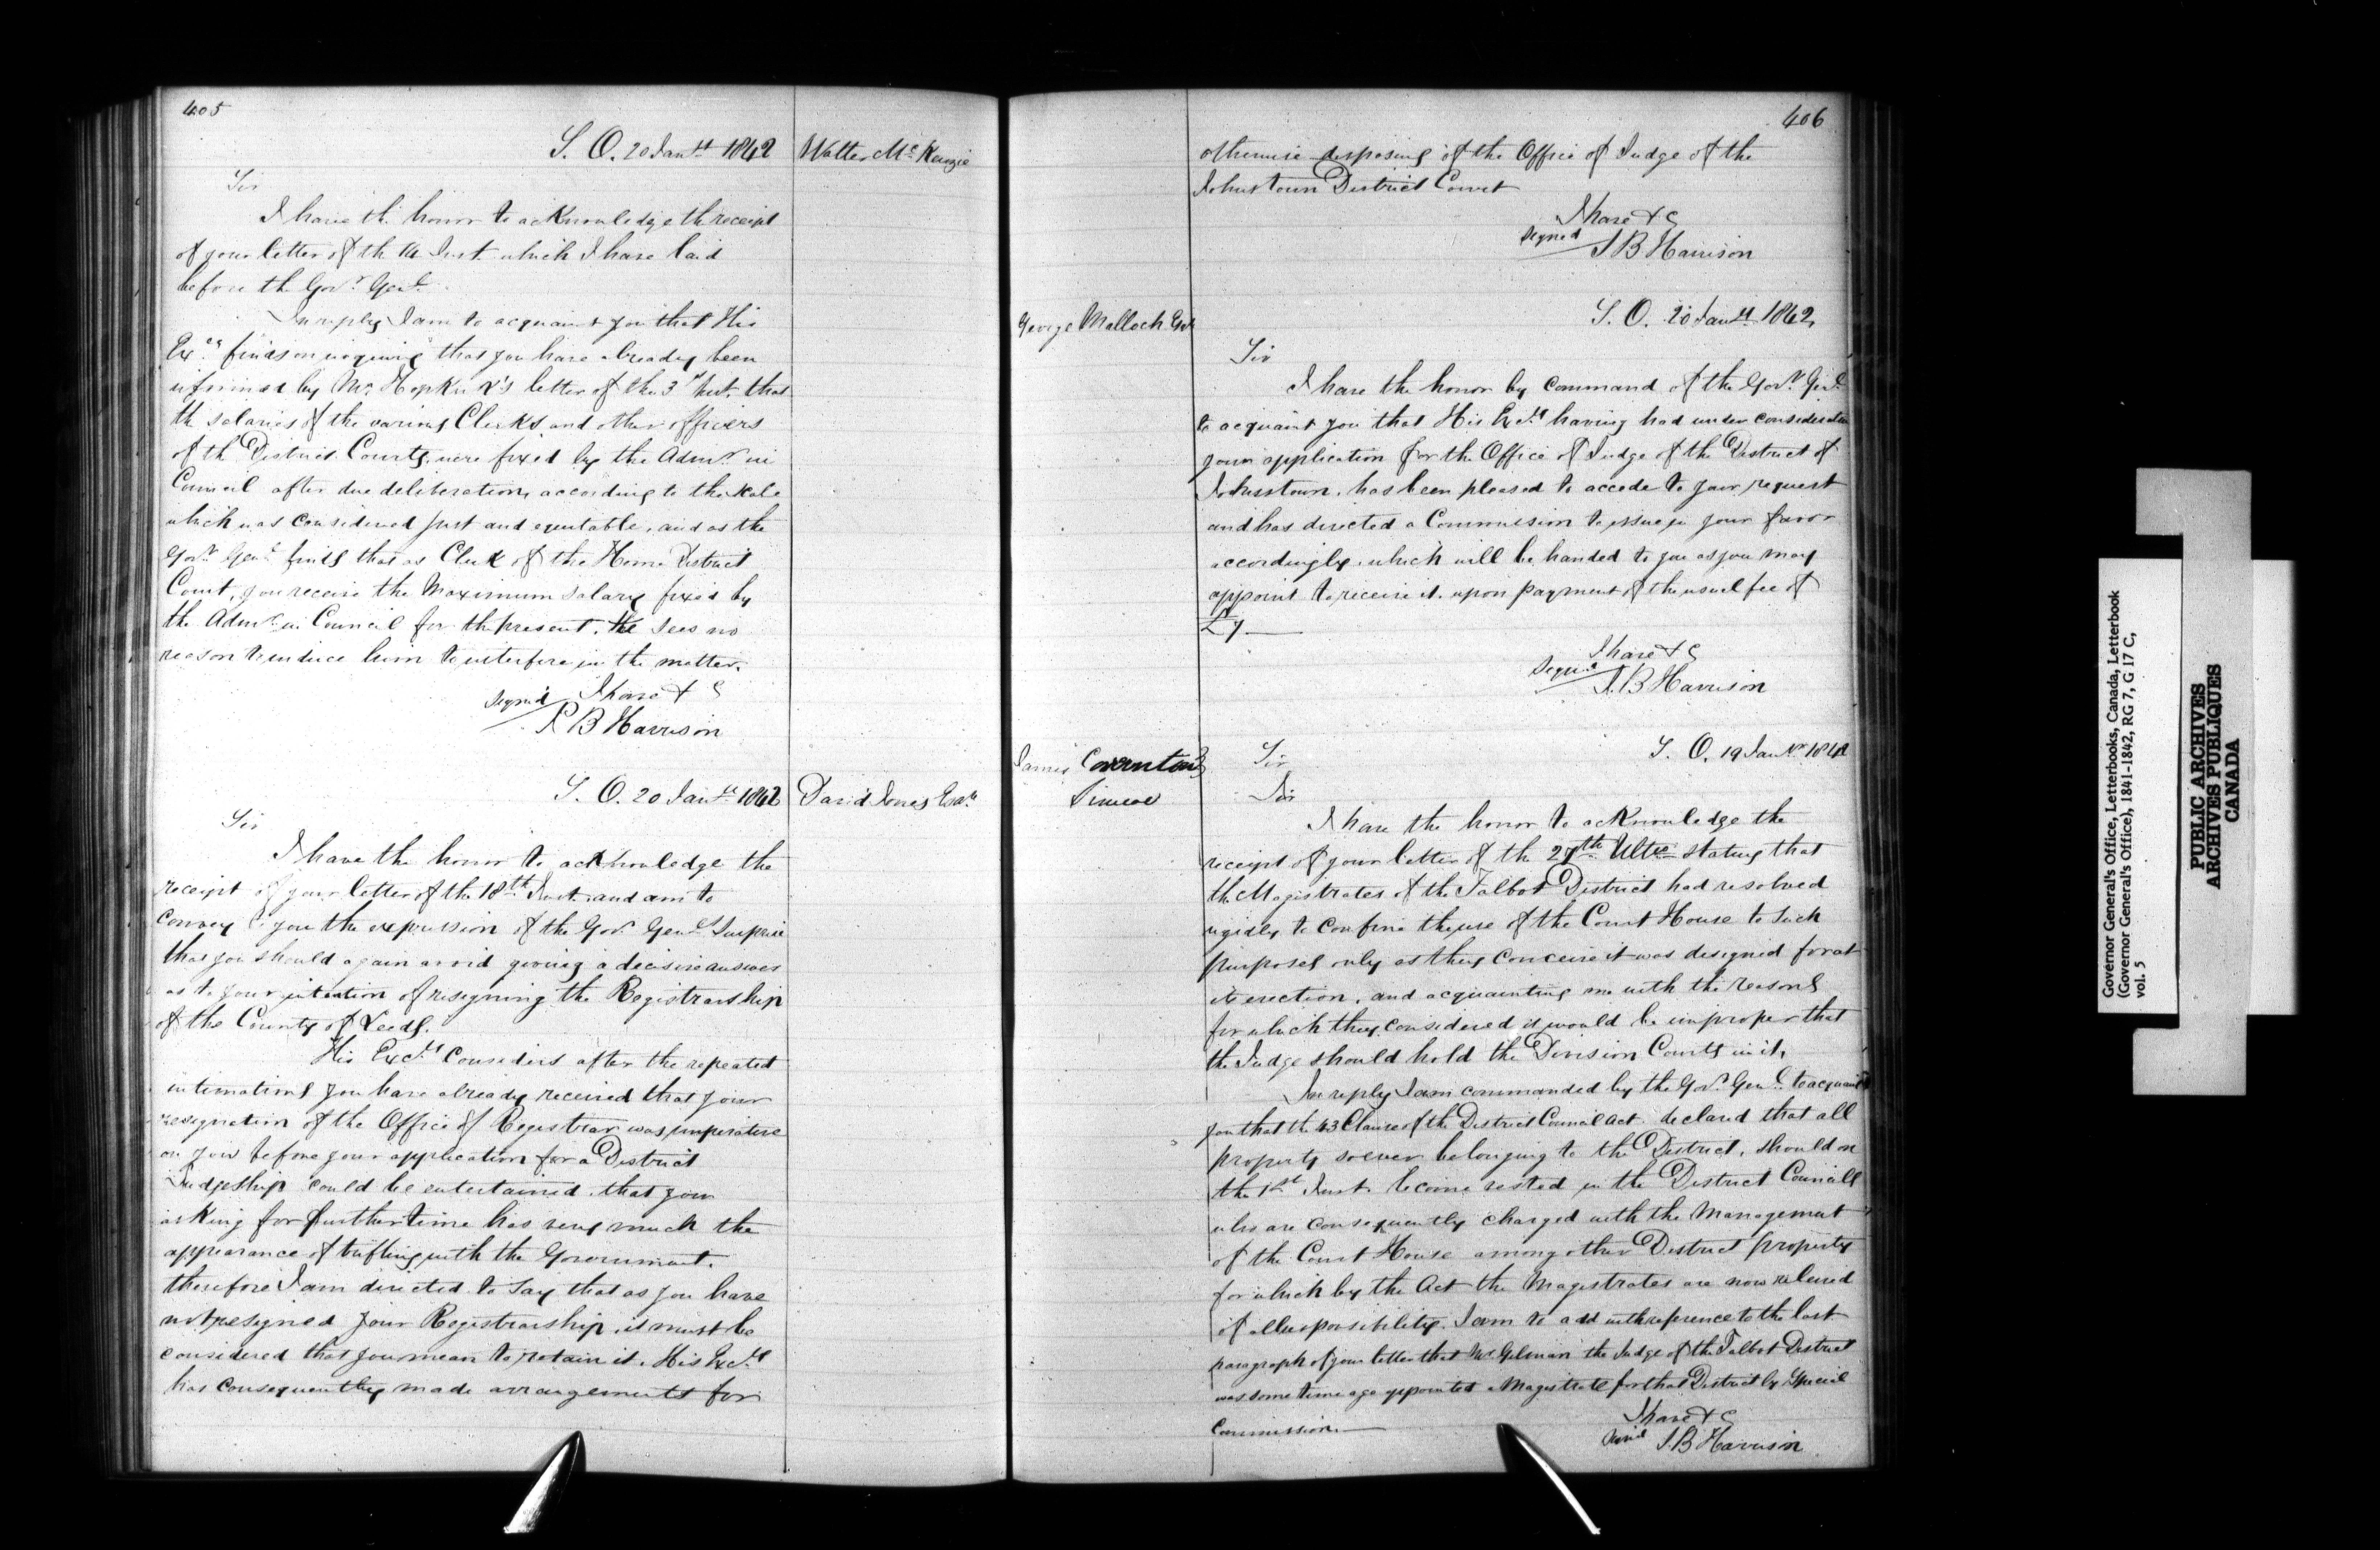 405
S. O. 20 Jany 1842
Walter McKenzie
Sir
I have the honor to acknowledge the receipt
of your letter of the 14 Inst. which I have laid
before the Govr Genl.
In reply I am to acquaint you that His
Excy finds on inquiring that you have already been
informed by Mr. Hopkirk's letter of the 3d Inst. that
the salaries of the various Clerks and other officers
of the District Courts were fixed by the Admr in
Council after due deliberation, according to the scale
which was considered just and equitable, and as the
Govr Genl finds that as Clerk of the Home District
Court, you receive the Maximum salary fixed by
the Admr in Council for the present. He sees no
reason to induce him to interfere in the matter.
I have &c
Signed
S B Harrison
S. O. 20 Jany 1842
David Jones Esqr
Sir
I have the honor to acknowledge the
receipt of your letter of the 18th Inst. and am to
convey to you the expression of the Govr Genls Surprise
that you should again avoid giving a decisive answer
as to your intention of resigning the Registrarship
of the County of Leeds.
His Excy Considers after the repeated
intimations you have already received that your
resignation of the Office of Registrar was imperative
on you before your application for a District
Judgeship could be entertained, that your
asking for further time has very much the
appearance of trifling with the Government.
therefore I am directed to say that as you have
not resigned your Registrarship, it must be
considered that you mean to retain it. His Excy
has consequently made arrangements for
406
otherwise disposing of the Office of Judge of the
Johnstown District Court
I have &c
Signed
S B Harrison
George Malloch Esqr
S. O. 20 Jany 1842,
Sir
I have the honor by Command of the Govr Genl
to acquaint you that His Excy having had under consideration
your application for the Office of Judge of the District of
Johnstown, has been pleased to accede to your request
and has directed a Commission to issue in your favor
accordingly, which will be handed to you as you may
appoint to receive it. upon payment of the usual fee of
£7
I have &c
Signed
S. B Harrison
S. O. 19 Jany 1842
James Covernton
Simcoe
Sir
Sir
I have the honor to acknowledge the
receipt of your letter of the 27th Ulto stating that
the Magistrates of the Talbot District had resolved
rigidly to confine the use of the Court House to such
purposes only as they conceive it was designed for at
its erection, and acquainting me with the reasons
for which they considered it would be improper that
the Judge should hold the Division Courts in it,
In reply I am commanded by the Govr Genl to acquaint
you that the 43 Clause of the District Council Act declared that all
property soever belonging to the District, should on
the 1st Inst. become vested in the District Councils
who are consequently charged with the Management
of the Court House among other District property
for which by the Act the Magistrates are now relieved
of all responsibility. I am to add with reference to the last
paragraph of your letter that Mr Gilman the Judge of the Talbot District
was some time ago appointed a Magistrate for that District by Special
Commission.
I have &c
Signed
S. B Harrison
Governor General's Office, Letterbooks, Canada, Letterbook
(Governor General's Office), 1841-1842, RG 7, G 17 C,
vol. 5
PUBLIC ARCHIVES
ARCHIVES PUBLIQUES
CANADA